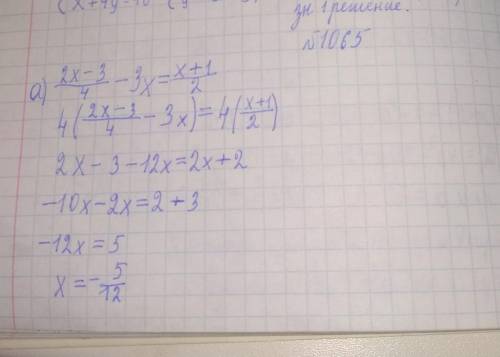 зн. 1 решение.
№1065
а) (2x-3)/4 - 3x = (x+1)/2
4((2x-3)/4 - 3x) = 4((x+1)/2)
2x - 3 - 12x = 2x + 2
-10x - 2x = 2 + 3
-12x = 5
x = -5/12